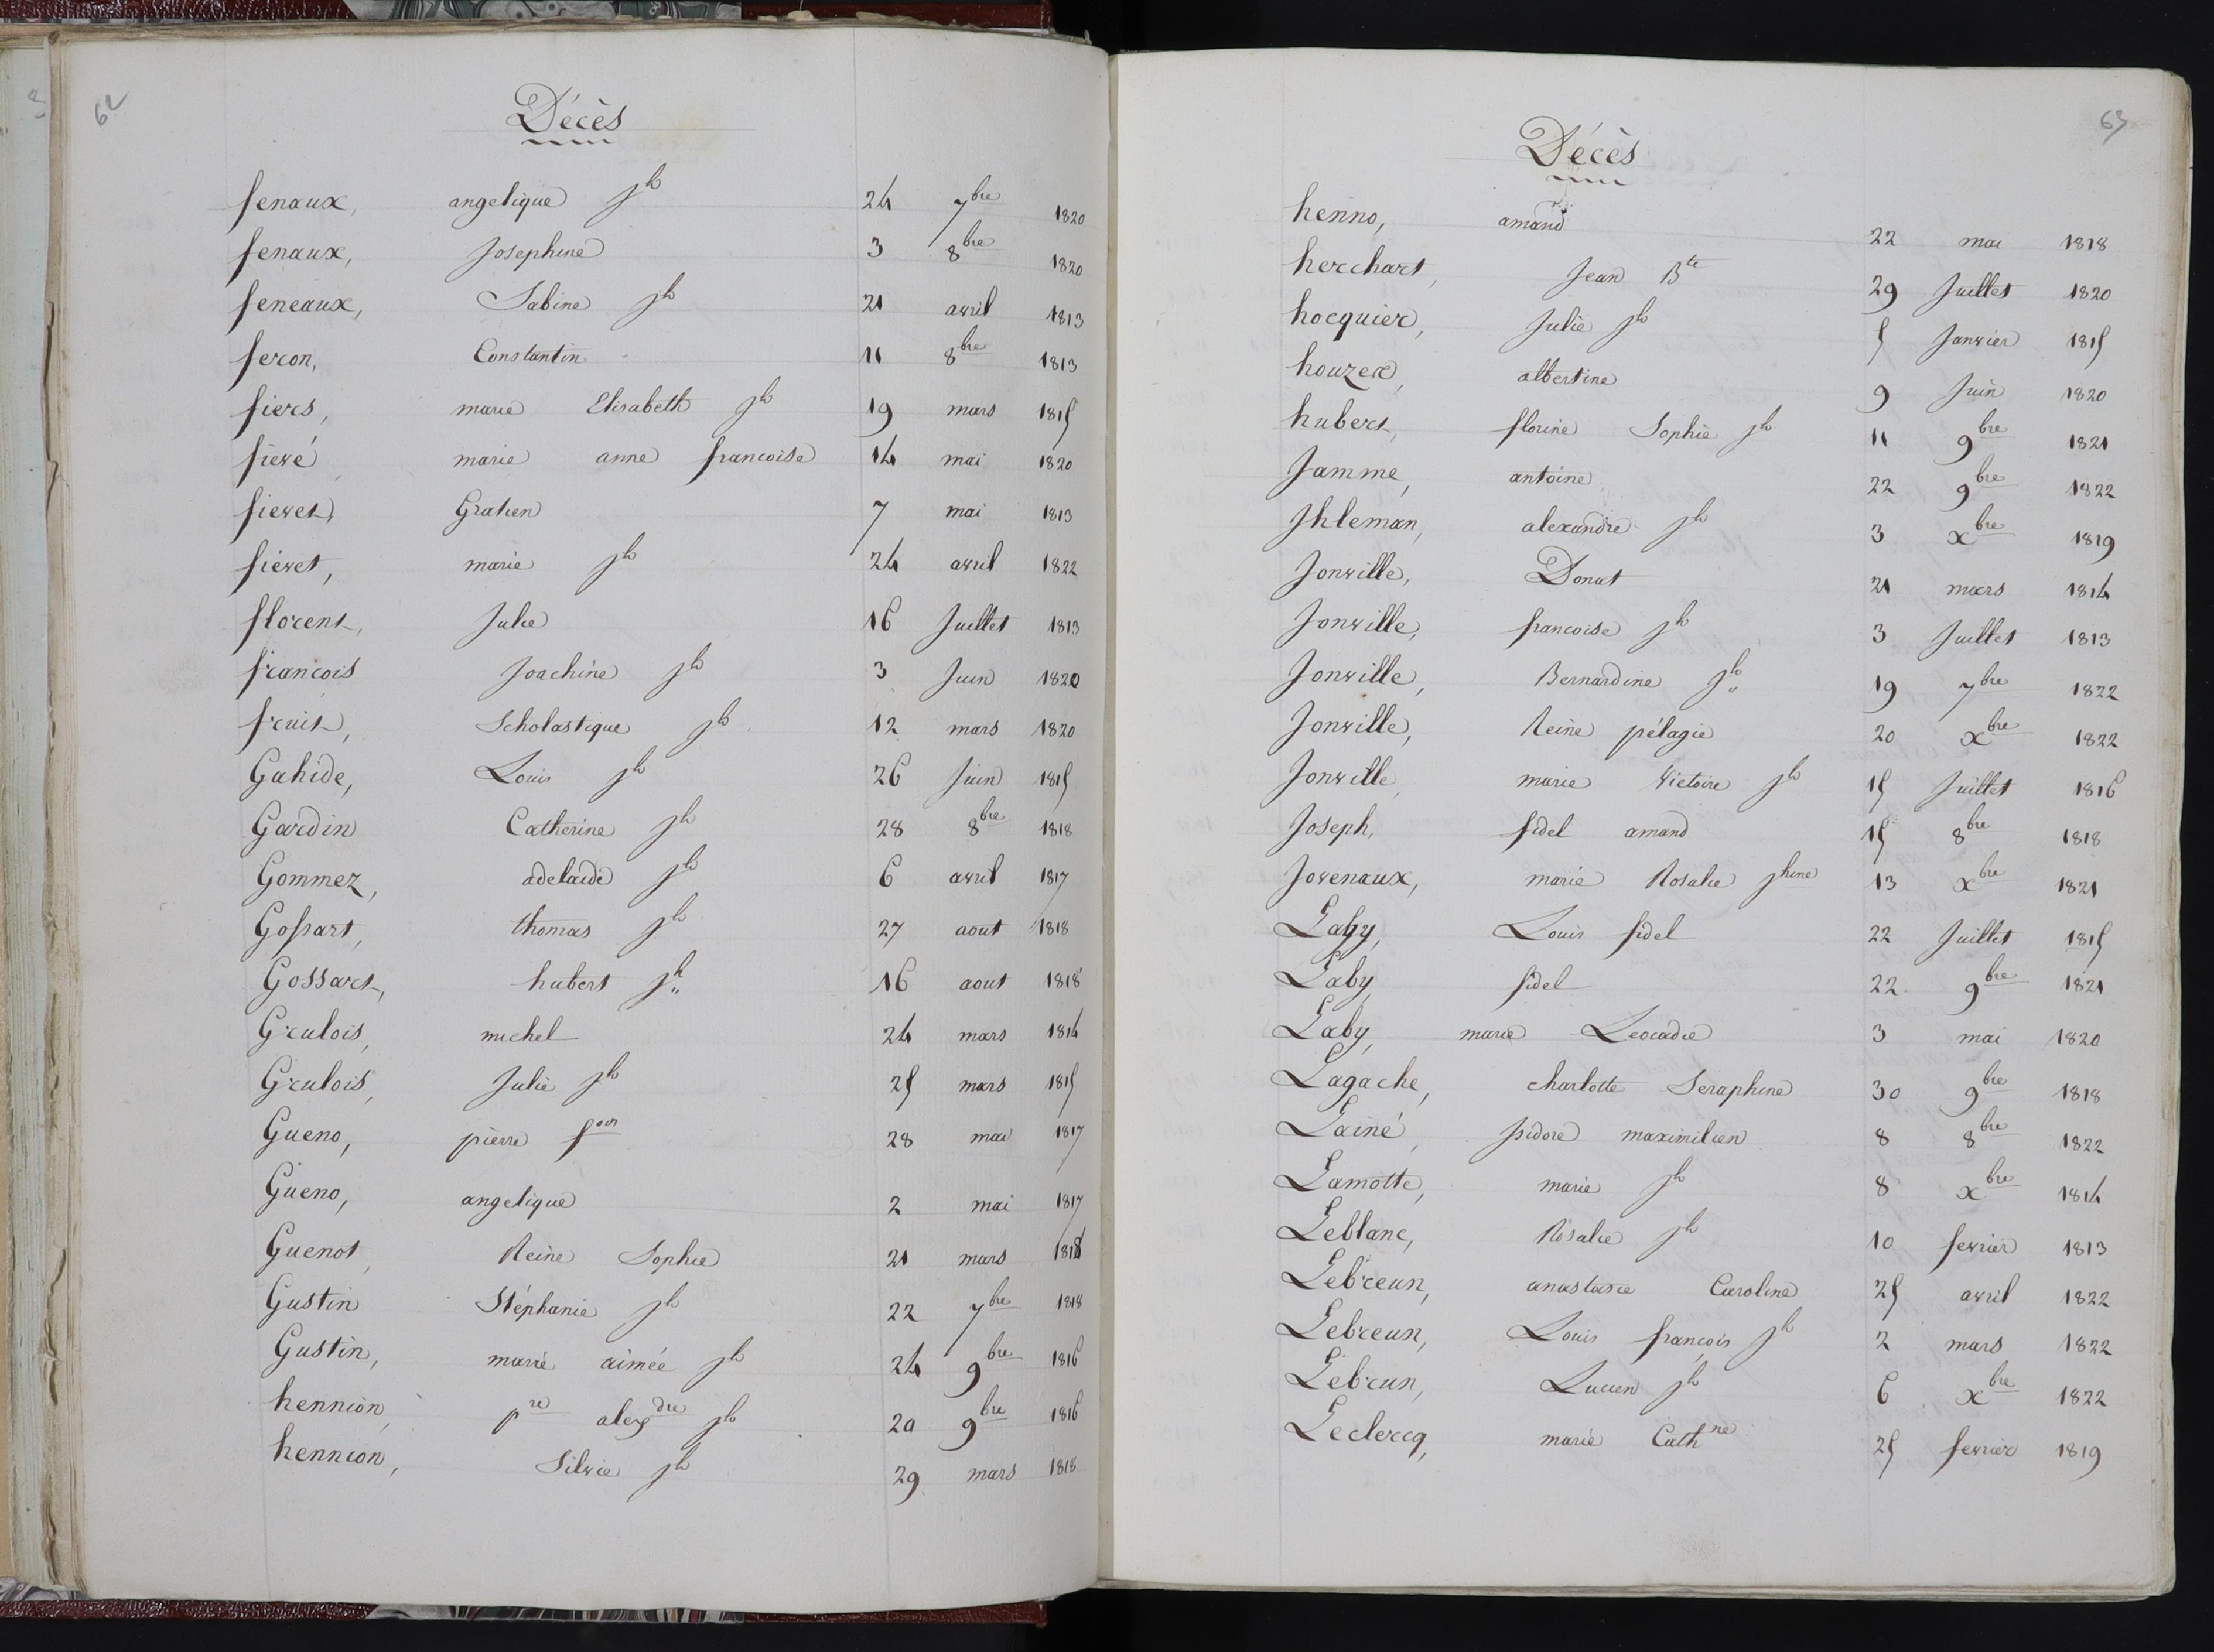 62
Décès
fenaux, angelique jh 24 7bre 1820
fenaux, Josephine 3 8bre 1820
feneaux, Sabine jh 21 avril 1813
feron, Constantin 11 8bre 1813
fiers, marie Elisabeth jh 19 mars 1815
fievé, marie anne francoise 14 mai 1820
fievet, Gratien 7 mai 1813
fiévet, marie jh 24 avril 1822
florent, Julie 16 Juillet 1813
francois Joachine jh 3 Juin 1820
fruit, Scholastique jh 12 mars 1820
Gahide, Louis jh 26 Juin 1815
Gardin Catherine jh 28 8bre 1818
Gommez, adelaide jh 6 avril 1817
Goſsart, thomas jh 27 aout 1818
Gossart, hubert jh 16 aout 1818
Grulois, michel 24 mars 1814
Grulois, Julie jh 25 mars 1815
Gueno, pierre fois 28 mai 1817
Gueno, angelique 2 mai 1817
Guenot, Reine Sophie 21 mars 1818
Gustin Stéphanie jh 22 7bre 1818
Gustin, marie aimée jh 24 9bre 1816
hennion, pre alexdre jh 20 9bre 1816
hennion, Silvie jh 29 mars 1818
63
Décès
henno, amand 22 mai 1818
herchart, Jean Bte 29 Juillet 1820
hocquier, Julie jh 5 Janvier 1815
houzer, albertine 9 Juin 1820
hubert, florine Sophie jh 11 9bre 1821
Jamme, antoine 22 9bre 1822
Jhleman, alexandre jh 3 xbre 1819
Jonville, Donat 21 mars 1814
Jonville, francoise jh 3 Juillet 1813
Jonville, Bernardine jh 19 7bre 1822
Jonville, Reine pélagie 20 xbre 1822
Jonville, marie Victoire jh 15 Juillet 1816
Joseph, fidel amand 15 8bre 1818
Jovenaux, marie Rosalie jhine 13 xbre 1821
Laby, Louis fidel 22 Juillet 1815
Laby, fidel 22 9bre 1821
Laby, marie Leocadie 3 mai 1820
Lagache, charlotte Seraphine 30 9bre 1818
Lainé, Isidore maximilien 8 8bre 1822
Lamotte, marie jh 8 xbre 1814
Leblanc, Rosalie jh 10 fevrier 1813
Lebreun, anastasie Caroline 25 avril 1822
Lebreun, Louis françois jh 2 mars 1822
Lebrun, Lucien jh 6 xbre 1822
Leclercq, marie Cathne 25 fevrier 1819